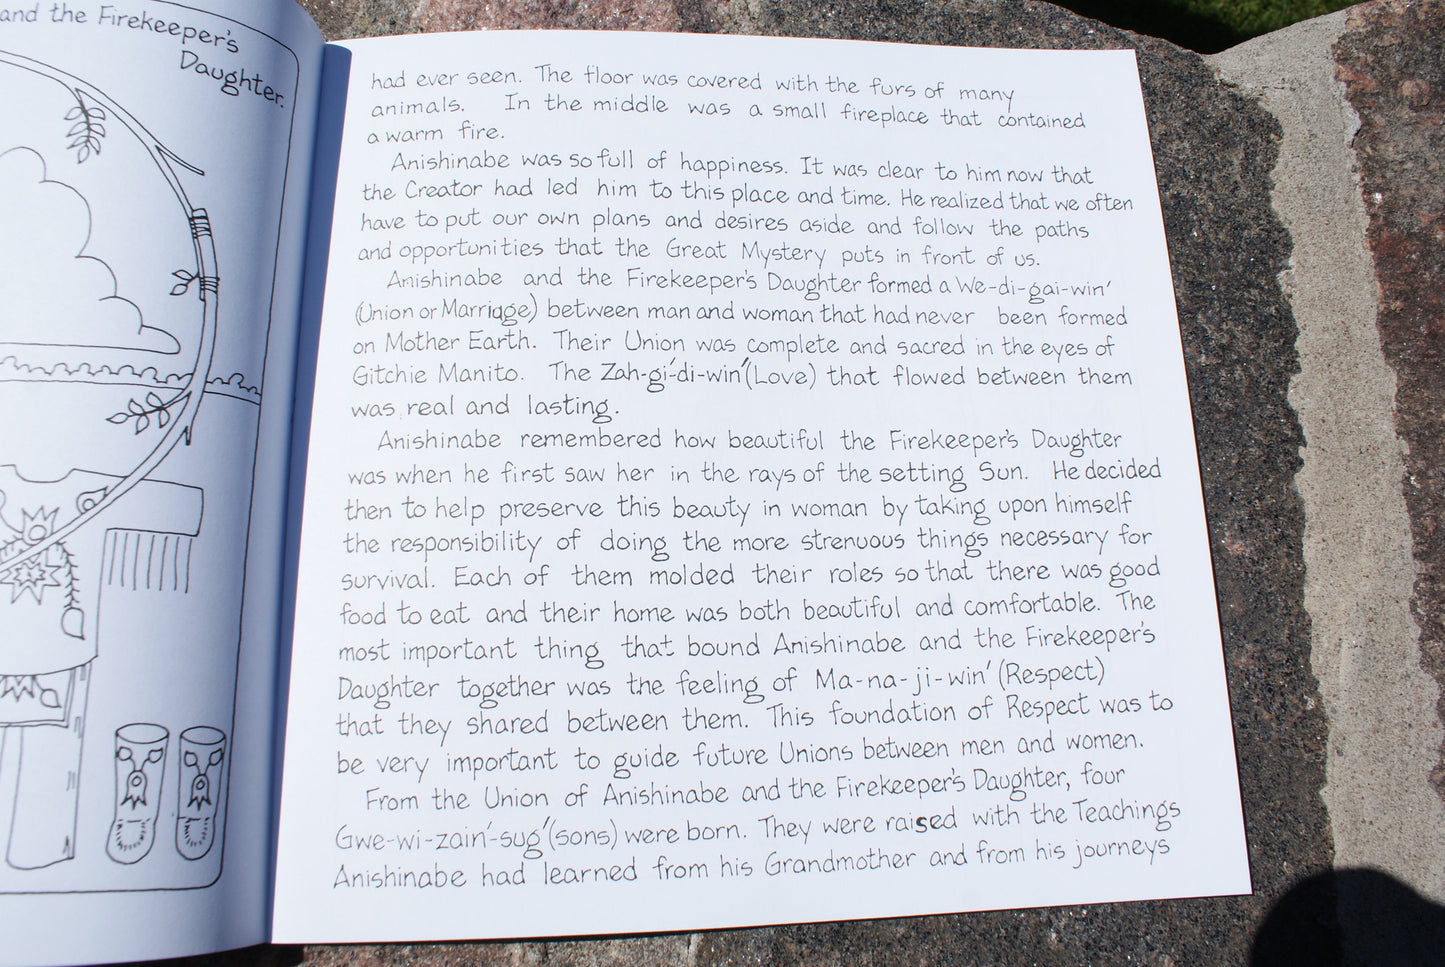 and the Firekeeper's
Daughter.
had ever seen. The floor was covered with the furs of many
animals. In the middle was a small fireplace that contained
a warm fire.
Anishinabe was so full of happiness. It was clear to him now that
the Creator had led him to this place and time. He realized that we often
have to put our own plans and desires aside and follow the paths
and opportunities that the Great Mystery puts in front of us.
Anishinabe and the Firekeeper's Daughter formed a We-di-gai-win'
(Union or Marriage) between man and woman that had never been formed
on Mother Earth. Their Union was complete and sacred in the eyes of
Gitchie Manito. The Zah-gi'-di-win' (Love) that flowed between them
was real and lasting.
Anishinabe remembered how beautiful the Firekeeper's Daughter
was when he first saw her in the rays of the setting Sun. He decided
then to help preserve this beauty in woman by taking upon himself
the responsibility of doing the more strenuous things necessary for
survival. Each of them molded their roles so that there was good
food to eat and their home was both beautiful and comfortable. The
most important thing that bound Anishinabe and the Firekeeper's
Daughter together was the feeling of Ma-na-ji-win' (Respect)
that they shared between them. This foundation of Respect was to
be very important to guide future Unions between men and women.
From the Union of Anishinabe and the Firekeeper's Daughter, four
Gwe-wi-zain'-sug' (sons) were born. They were raised with the Teachings
Anishinabe had learned from his Grandmother and from his journeys